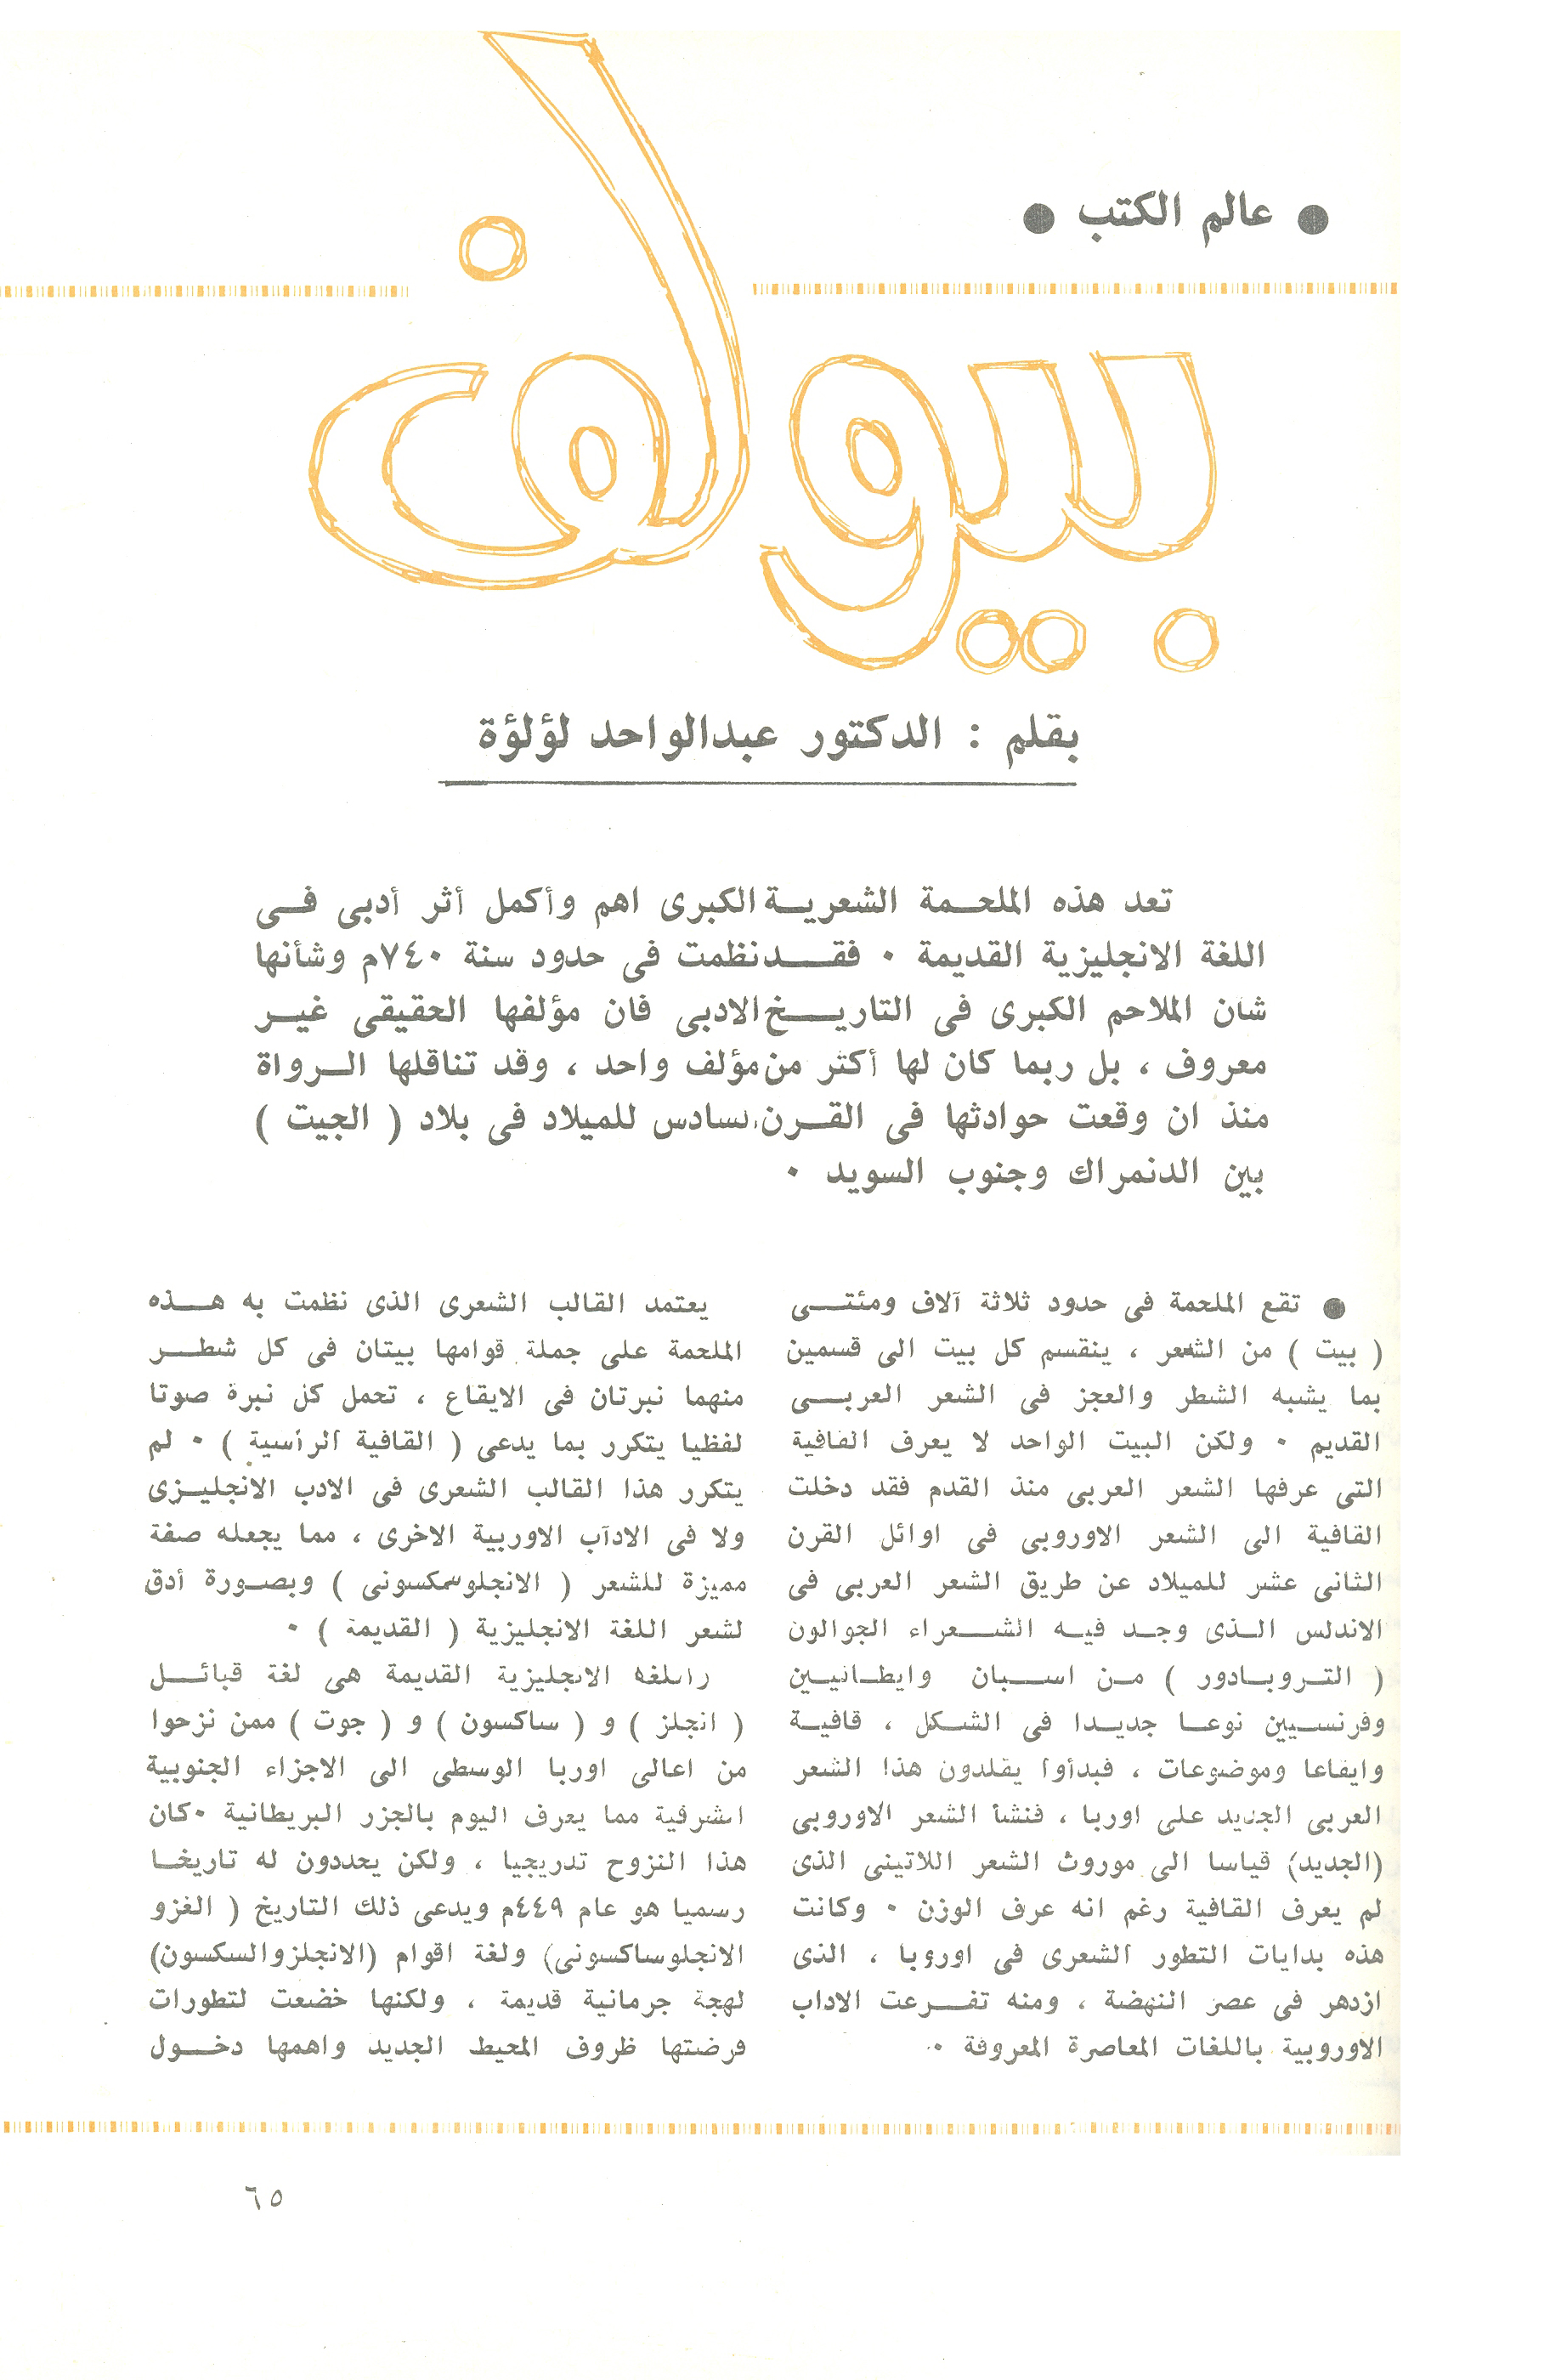 ● عالم الكتب ●
بيولف
بقلم : الدكتور عبدالواحد لؤلؤة
تعد هذه الملحمة الشعرية الكبرى اهم وأكمل أثر أدبى فى
اللغة الانجليزية القديمة ٠ فقد نظمت فى حدود سنة ٧٤٠م وشأنها
شان الملاحم الكبرى فى التاريخ الادبى فان مؤلفها الحقيقى غير
معروف ، بل ربما كان لها أكثر من مؤلف واحد ، وقد تناقلها الرواة
منذ ان وقعت حوادثها فى القرن السادس للميلاد فى بلاد ( الجيت )
بين الدنمراك وجنوب السويد ٠
● تقع الملحمة فى حدود ثلاثة آلاف ومئتى
( بيت ) من الشعر ، ينقسم كل بيت الى قسمين
بما يشبه الشطر والعجز فى الشعر العربى
القديم ٠ ولكن البيت الواحد لا يعرف القافية
التى عرفها الشعر العربى منذ القدم فقد دخلت
القافية الى الشعر الاوروبى فى اوائل القرن
الثانى عشر للميلاد عن طريق الشعر العربى فى
الاندلس الذى وجد فيه الشعراء الجوالون
( التروبادور ) من اسبان وايطاليين
وفرنسيين نوعا جديدا فى الشكل ، قافية
وايقاعا وموضوعات ، فبدأوا يقلدون هذا الشعر
العربى الجديد على اوربا ، فنشأ الشعر الاوروبى
(الجديد) قياسا الى موروث الشعر اللاتينى الذى
لم يعرف القافية رغم انه عرف الوزن ٠ وكانت
هذه بدايات التطور الشعرى فى اوروبا ، الذى
ازدهر فى عصر النهضة ، ومنه تفرعت الاداب
الاوروبية باللغات المعاصرة المعروفة ٠
يعتمد القالب الشعرى الذى نظمت به هذه
الملحمة على جملة قوامها بيتان فى كل شطر
منهما نبرتان فى الايقاع ، تحمل كل نبرة صوتا
لفظيا يتكرر بما يدعى ( القافية الرأسية ) ٠ لم
يتكرر هذا القالب الشعرى فى الادب الانجليزى
ولا فى الادآب الاوربية الاخرى ، مما يجعله صفة
مميزة للشعر ( الانجلوسكسونى ) وبصورة أدق
لشعر اللغة الانجليزية ( القديمة ) ٠
واللغة الانجليزية القديمة هى لغة قبائل
( انجلز ) و ( ساكسون ) و ( جوت ) ممن نزحوا
من اعالى اوربا الوسطى الى الاجزاء الجنوبية
الشرقية مما يعرف اليوم بالجزر البريطانية ٠ كان
هذا النزوح تدريجيا ، ولكن يحددون له تاريخا
رسميا هو عام ٤٤٩م ويدعى ذلك التاريخ ( الغزو
الانجلوساكسونى) ولغة اقوام (الانجلز والسكسون)
لهجة جرمانية قديمة ، ولكنها خضعت لتطورات
فرضتها ظروف المحيط الجديد واهمها دخول
٦٥